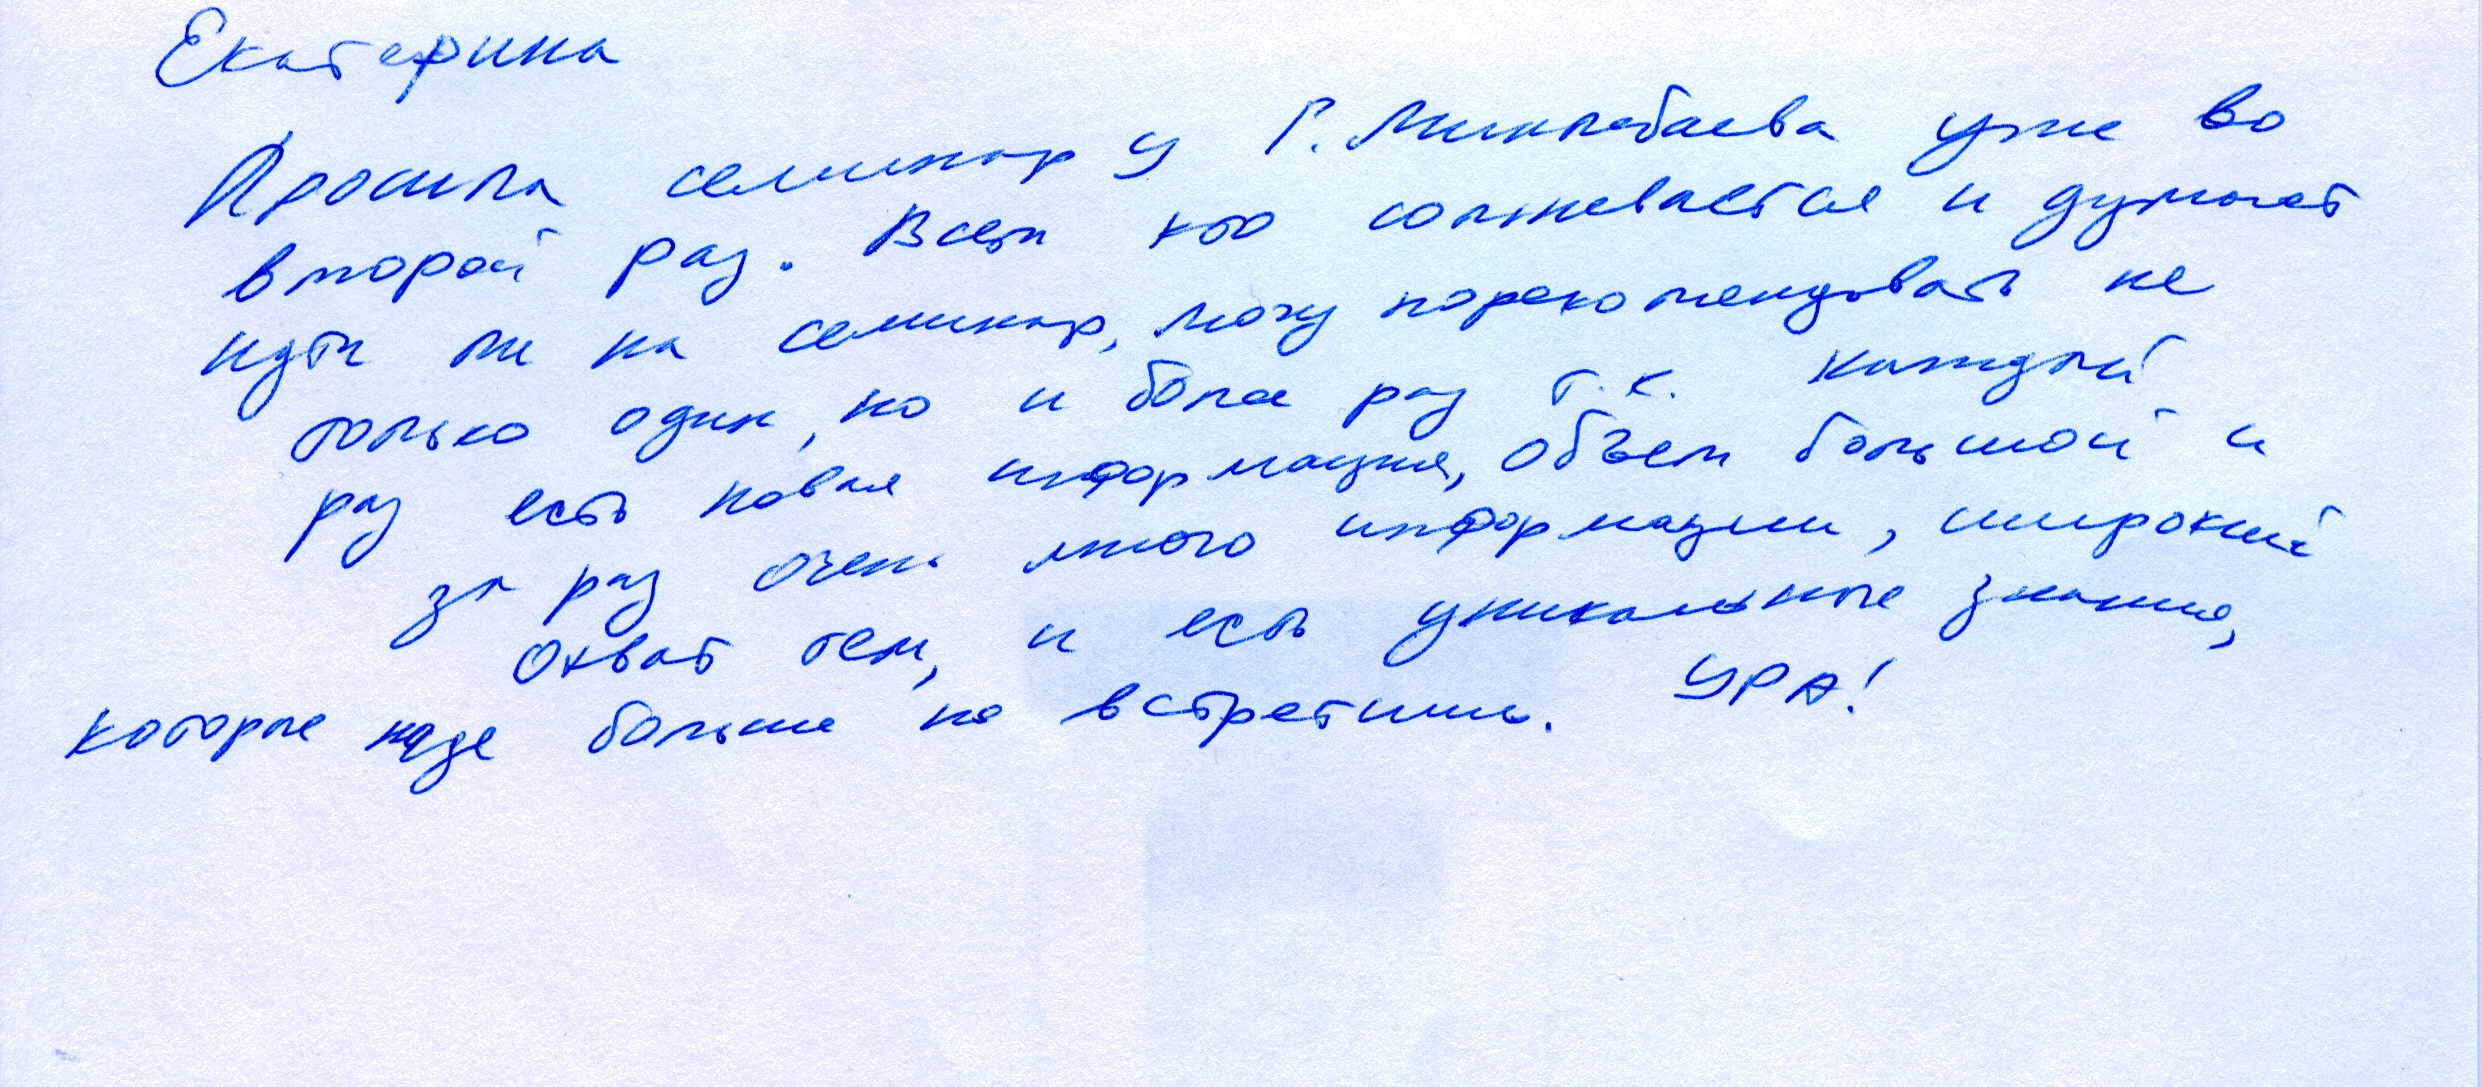 Екатерина
Прошла семинар у Г. Минлебаева уже во
второй раз. Всем кто сомневается и думает
идти ли на семинар, могу порекомендовать не
только один, но и более раз т.к. каждый
раз есть новая информация, объем большой и
за раз очень много информации, широкий
охват тем, и есть уникальные знания,
которые нигде больше не встретишь. УРА!